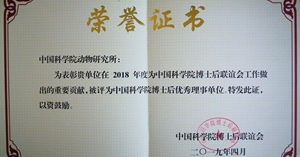 荣誉证书
中国科学院动物研究所:
为表彰贵单位在 2018 年度为中国科学院博士后联谊会工作做
出的重要贡献,被评为中国科学院博士后优秀理事单位。特发此证,
以资鼓励。
中国科学院博士后联谊会
二〇一九年四月